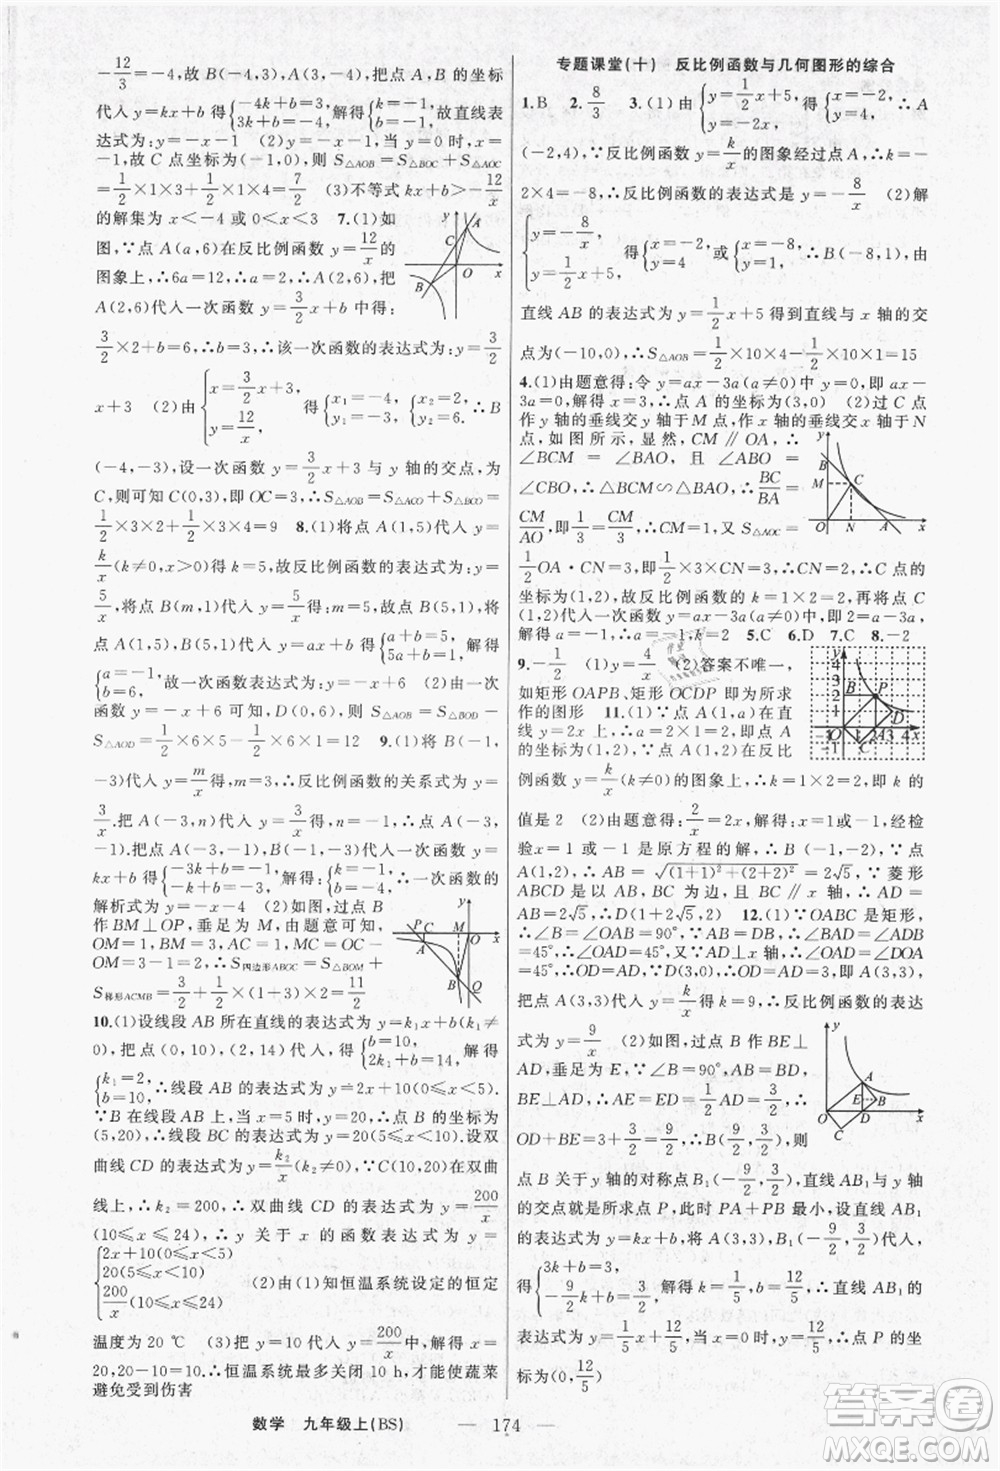 -12/3=-4,故 B(3,-4),A(3,-4).把 A,B 的坐标
代入 y=kx+b 得{-4k+b=3, 3k+b=-4,解得{k=-1, b=-1,故直线表
达式为:y=-x-1 (2)y=-x-1,当 y=0 时,x=
-1,故 C 点坐标为(-1,0),则 S△AOB=S△BOC+S△AOC
=1/2×1×3+1/2×1×4=7/2 (3)不等式 kx+b>-12/x
的解集为 x<-4 或 0<x<3 7.(1)如
图,∵点 A(a,6)在反比例函数 y=12/x 的
图象上,∴6a=12,∴a=2,把
A(2,6)代入一次函数 y=3/2x+b 中得:
3/2×2+b=6,∴b=3,∴该一次函数的表达式为:y=3/2
x+3 (2)由{y=3/2x+3, y=12/x,得{x₁=-4, y₁=-3,{x₂=2, y₂=6,∴B
(-4,-3),设一次函数 y=3/2x+3 与 y 轴的交点,为
C,则可知 C(0,3),即 OC=3,∴S△AOB=S△AOC+S△BOC=
1/2×3×2+1/2×3×4=9 8.(1)将点 A(1,5)代入 y=
k/x(k≠0,x>0)得 k=5,故反比例函数的表达式为:y=
5/x,将点 B(m,1)代入 y=5/x 得:m=5,故点 B(5,1),将
点 A(1,5),B(5,1)代入 y=ax+b 得{a+b=5, 5a+b=1,解得
{a=-1, b=6,故一次函数表达式为:y=-x+6 (2)由一次
函数 y=-x+6 可知,D(0,6),则 S△AOB=S△BOD-
S△AOD=1/2×6×5-1/2×6×1=12 9.(1)将 B(-1,
-3)代入 y=m/x 得 m=3,∴反比例函数的关系式为 y=
3/x.把 A(-3,n)代入 y=3/x 得,n=-1,∴点 A(-3,
-1).把点 A(-3,-1),B(-1,-3)代入 y=
kx+b 得{-3k+b=-1, -k+b=-3,解得{k=-1, b=-4,∴一次函数的
解析式为 y=-x-4 (2)如图,过点 B
作 BM⊥OP,垂足为 M,由题意可知,
OM=1,BM=3,AC=1,MC=OC-
OM=3-1=2,∴S四边形ABOC=S△BOM+
S梯形ACMB=3/2+(1+3)×2×1/2=11/2
10.(1)设线段 AB 所在直线的表达式为 y=k₁x+b(k₁≠
0),把点(0,10),(2,14)代入,得{b=10, 2k₁+b=14,解得
{k₁=2, b=10,∴线段 AB 的表达式为 y=2x+10(0≤x<5).
∵B 在线段 AB 上,当 x=5 时,y=20,∴点 B 的坐标为
(5,20),∴线段 BC 的表达式为 y=20(5≤x<10).设双
曲线 CD 的表达式为 y=k₂/x(k₂≠0),∵C(10,20)在双曲
线上,∴k₂=200,∴双曲线 CD 的表达式为 y=200/x
(10≤x≤24),∴y 关于 x 的函数表达式为 y=
{2x+10(0≤x<5), 20(5≤x<10), 200/x(10≤x≤24) (2)由(1)知恒温系统设定的恒定
温度为 20 ℃ (3)把 y=10 代入 y=200/x 中,解得 x=
20,20-10=10,∴恒温系统最多关闭 10 h,才能使蔬菜
避免受到伤害
专题课堂(十) 反比例函数与几何图形的综合
1.B 2.8/3 3.(1)由{y=1/2x+5, y=-2x,得{x=-2, y=4,∴A
(-2,4),∵反比例函数 y=k/x 的图象经过点 A,∴k=-
2×4=-8,∴反比例函数的表达式是 y=-8/x (2)解
{y=-8/x, y=1/2x+5,得{x=-2, y=4,或{x=-8, y=1,∴B(-8,1),由
直线 AB 的表达式为 y=1/2x+5 得到直线与 x 轴的交
点为(-10,0),∴S△AOB=1/2×10×4-1/2×10×1=15
4.(1)由题意得:令 y=ax-3a(a≠0)中 y=0,即 ax-
3a=0,解得 x=3,∴点 A 的坐标为(3,0) (2)过 C 点
作 y 轴的垂线交 y 轴于 M 点,作 x 轴的垂线交 x 轴于 N
点,如图所示,显然,CM∥OA,∴
∠BCM=∠BAO,且∠ABO=
∠CBM,∴△BCM∽△BAO,∴BC/BA=
CM/AO,即1/3=CM/3,∴CM=1,又 S△AOC=
1/2OA·CN=3,即1/2×3×CN=3,∴CN=2,∴C 点的
坐标为(1,2),故反比例函数的 k=1×2=2,再将点 C
(1,2)代入一次函数 y=ax-3a(a≠0)中,即 2=a-3a,
解得 a=-1,∴a=-1,k=2 5.C 6.D 7.C 8.-2
9.-1/2 (1)y=4/x (2)答案不唯一,
如矩形 OAPB、矩形 OCDP 即为所求
作的图形 11.(1)∵点 A(1,a)在直
线 y=2x 上,∴a=2×1=2,即点 A
的坐标为(1,2),∵点 A(1,2)在反比
例函数 y=k/x(k≠0)的图象上,∴k=1×2=2,即 k 的
值是 2 (2)由题意得:2/x=2x,解得:x=1 或-1,经检
验 x=1 或-1 是原方程的解,∴B(-1,-2),∵点
A(1,2),∴AB=√((1+1)²+(2+2)²)=2√5,∵菱形
ABCD 是以 AB 为边,且 BC∥x 轴,∴AD=
AB=2√5,∴D(1+2√5,2) 12.(1)∵OABC 是矩形,
∴∠B=∠OAB=90°,∵AB=DB,∴∠BAD=∠ADB
=45°,∴∠OAD=45°,又∵AD⊥x 轴,∴∠OAD=∠DOA
=45°,∴OD=AD,∵D(3,0),∴OD=AD=3,即 A(3,3),
把点 A(3,3)代入 y=k/x 得 k=9,∴反比例函数的表达
式为 y=9/x (2)如图,过点 B 作 BE⊥
AD,垂足为 E,∵∠B=90°,AB=BD,
BE⊥AD,∴AE=ED=1/2AD=3/2,∴
OD+BE=3+3/2=9/2,∴B(9/2,3/2),则
点 B 关于 y 轴的对称点 B₁(-9/2,3/2),直线 AB₁ 与 y 轴
的交点就是所求点 P,此时 PA+PB 最小,设直线 AB₁
的表达式为 y=kx+b,将 A(3,3),B₁(-9/2,3/2)代入
得{3k+b=3, -9/2k+b=3/2,解得 k=1/5,b=12/5,∴直线 AB₁ 的
表达式为 y=1/5x+12/5,当 x=0 时,y=12/5,∴点 P 的坐
标为(0,12/5)
数学 九年级上(BS) — 174 —
答案圈
MXQE.COM